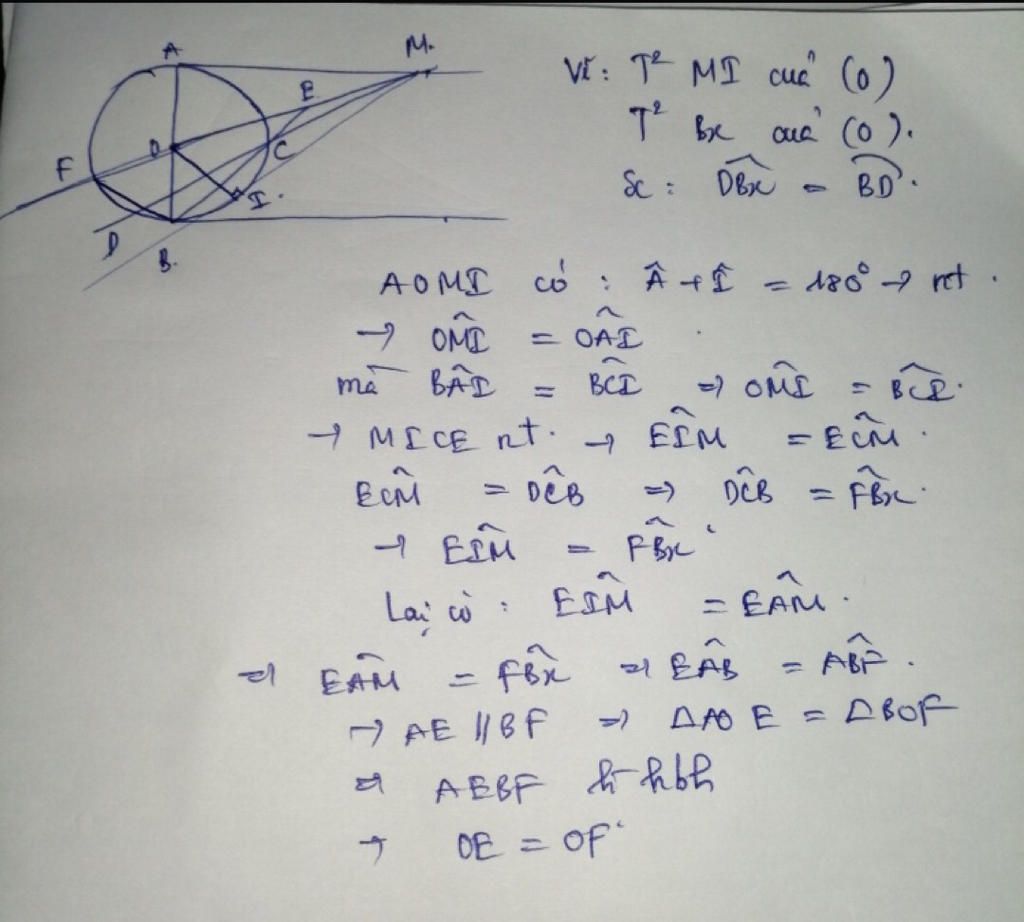 A
M.
E
O
C
F
I.
D
B.
Vẽ: T² MI của (O)
T² Bx của (O).
Sc: DBx̂ = BD.
AOMI có: Â + Î = 180° → nt.
→ OM̂I = OÂI
mà BÂI = BĈI => OM̂I = BĈI.
→ MICE nt. → EÎM = EĈM.
EĈM = DĈB => DĈB = FB̂x.
→ EÎM = FB̂x
Lại có: EÎM = EÂM.
=> EÂM = FB̂x => EÂB = AB̂F.
→ AE // BF => ΔAOE = ΔBOF
=> AEBF h-hbh
→ OE = OF